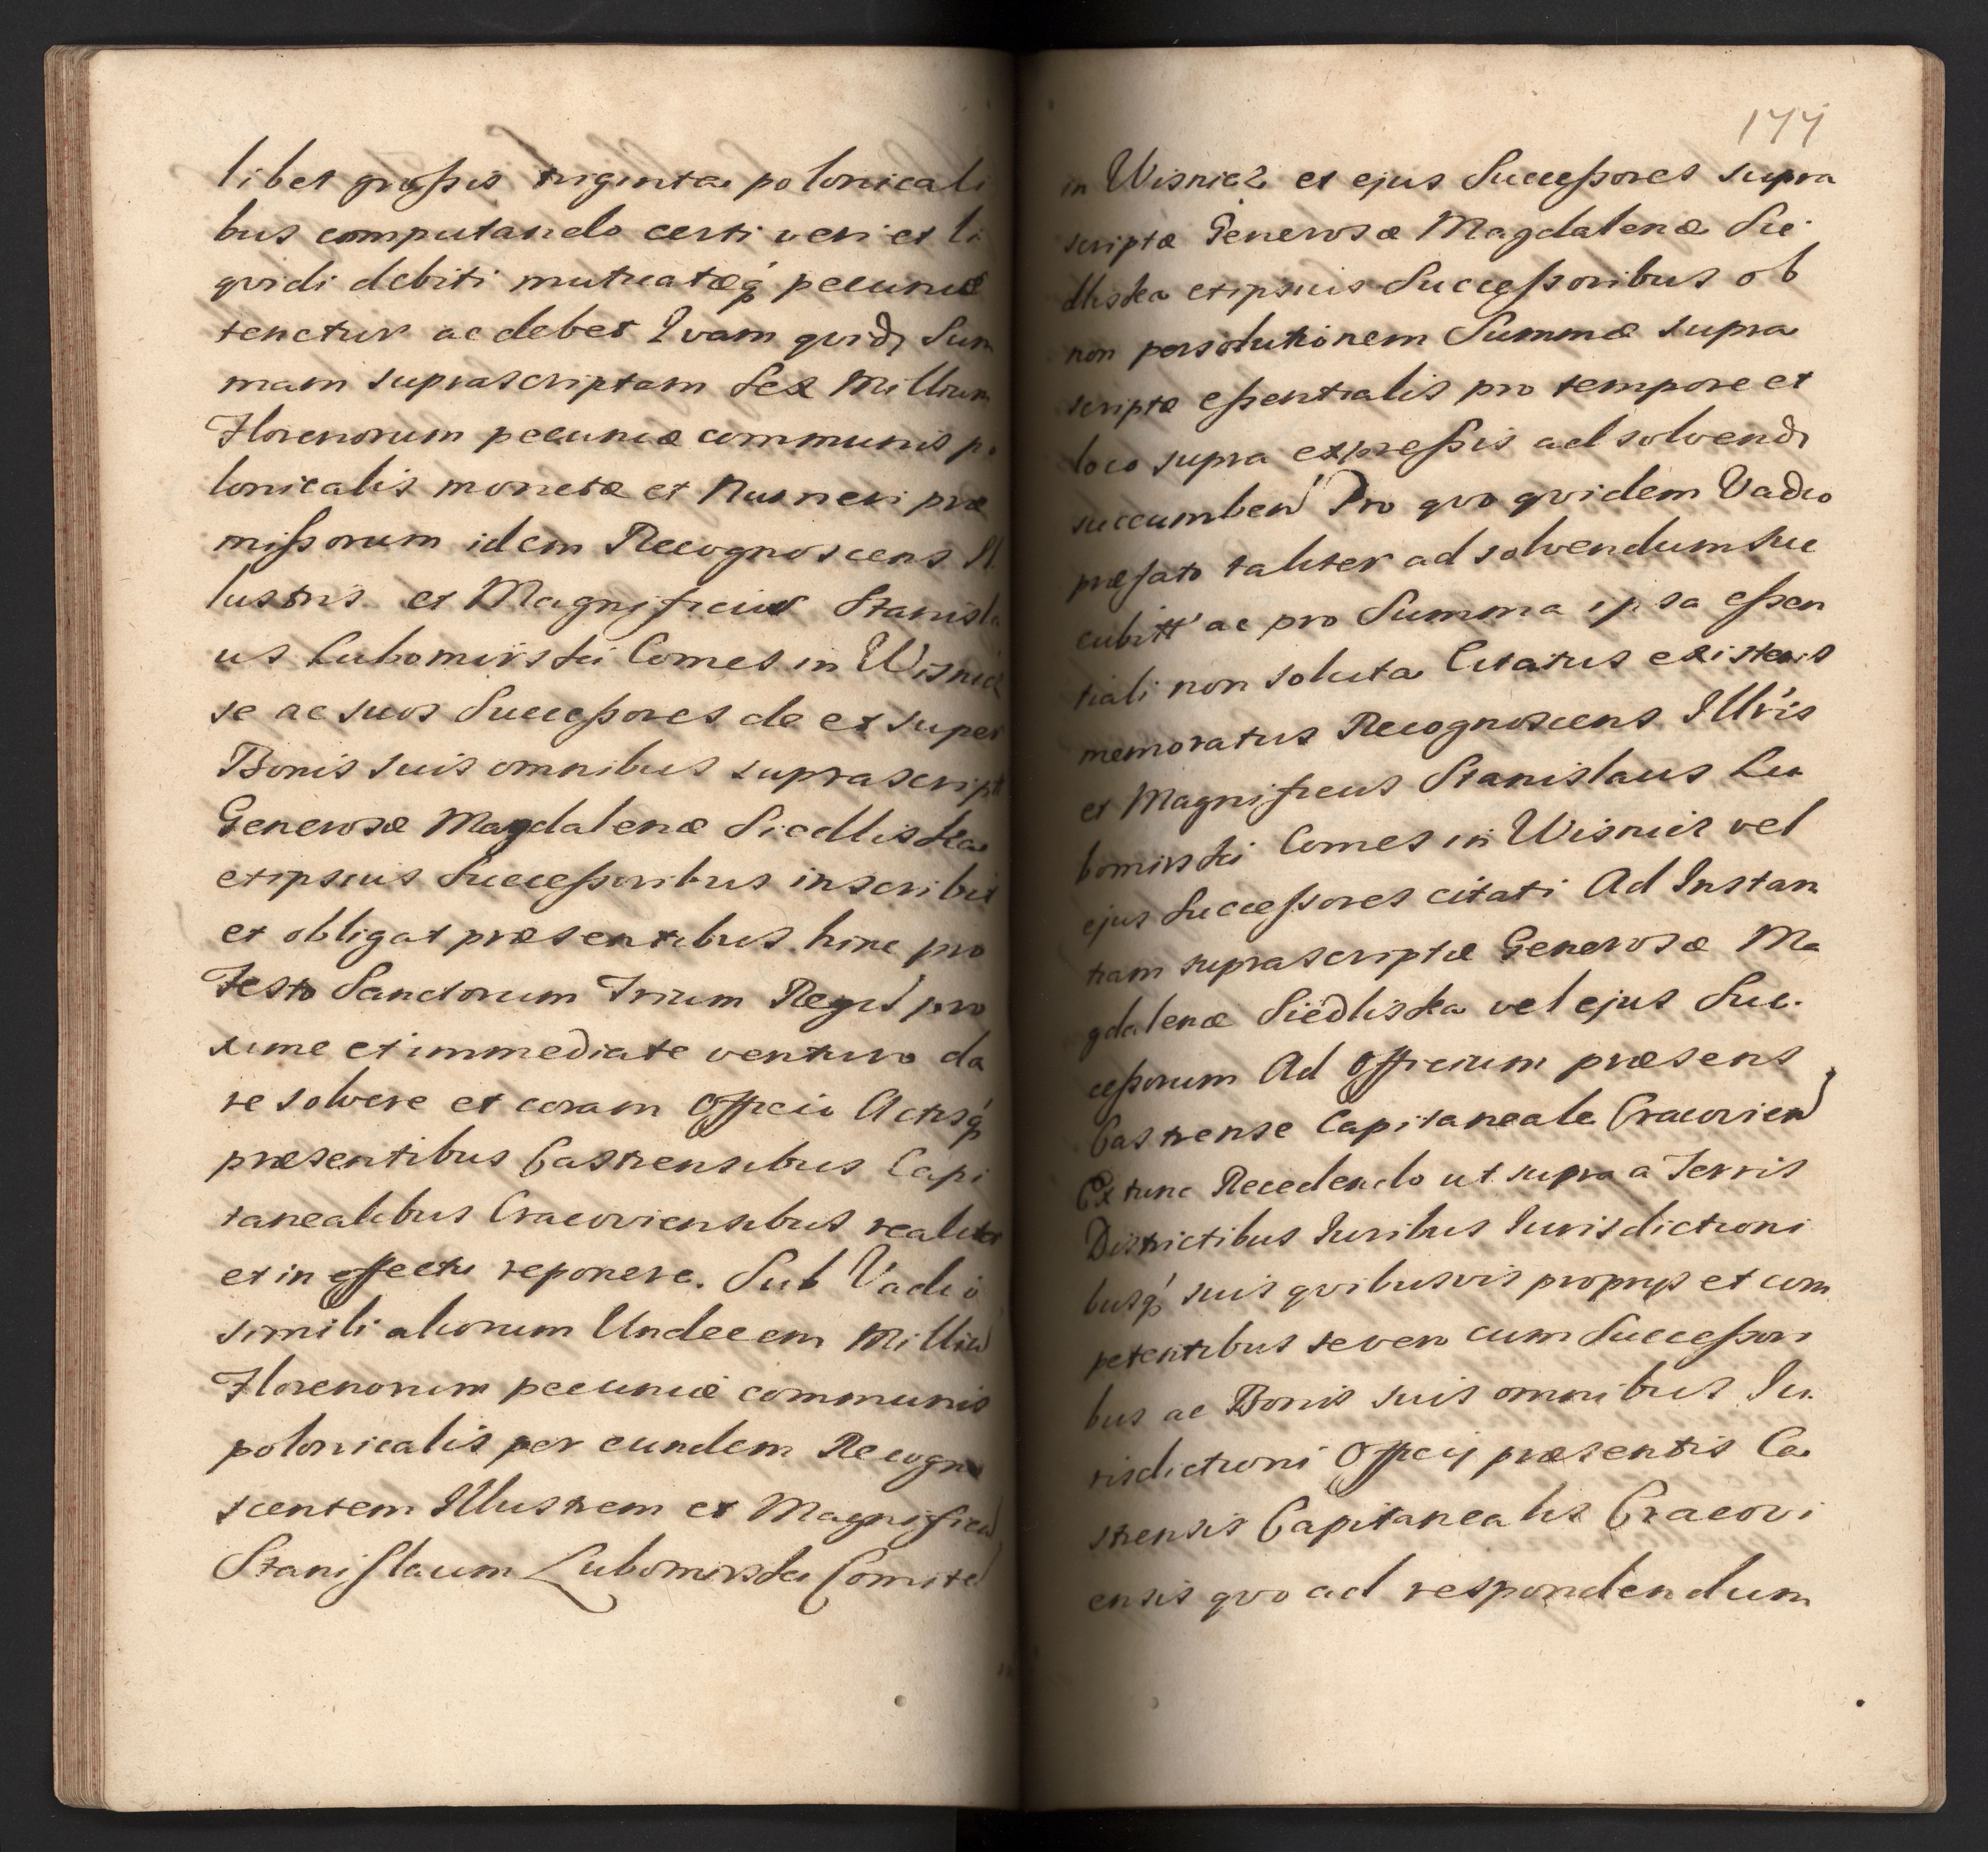 libet großis triginta polonicali
bus computando certi veri et li
qvidi debiti mutuatæq́ pecuniæ
tenetur ac debet Qvam qvidꝫ Sum
mam suprascriptam Sex Millium
Florenorum pecuniæ communis po
lonicalis monetæ et Numeri præ
mißorum idem Recognoscens Il
lustris et Magnificus Stanisla
us Lubomirski Comes in Wisnicz
se ac suos Succeßores de et super
Bonis suis omnibus suprascriptæ
Generosæ Magdalenæ Siedliska
et ipsius Succeßoribus inscribit
et obligat præsentibus hinc pro
Festo Sanctorum Trium Regū pro
xime et immediate venturo da
re solvere et coram Officio Actisq́
præsentibus Castrensibus Capi
tanealibus Cracoviensibus realiter
et in effectu reponere. Sub Vadio
simili aliorum Undecem Milliū
Florenorum pecuniæ communis
polonicalis per eundem Recogno
scentem Illustrem et Magnificū
Stanislaum Lubomirski Comitē
177
in Wisnicz et ejus Succeßores supra
scriptæ Generosæ Magdalenæ Sie
dliska et ipsius Succeßoribus ob
non persolutionem Summæ supra
scriptæ eßentialis pro tempore et
loco supra expreßis ad solvendꝫ
succumbeñ Pro qvo qvidem Vadio
præfato taliter ad solvendum suc
cubitt' ac pro Summa ipsa eßen
tiali non soluta Citatus existens
memoratus Recognoscens Illr̃is
et Magnificus Stanislaus Lu
bomirski Comes in Wisnicz vel
ejus Succeßores citati Ad Instan
tiam suprascriptæ Generosæ Ma
gdalenæ Siedliska vel ejus Suc
ceßorum Ad Officium præsens
Castrense Capitaneale Cracovień
Ex tunc Recedendo ut supra a Terris
Districtibus Iuribus Iurisdictioni
busq́ suis qvibusvis proprijs et com
petentibus se vero cum Succeßori
bus ac Bonis suis omnibus Iu
risdictioni Officij præsentis Ca
strensis Capitanealis Cracovi
ensis qvo ad respondendum